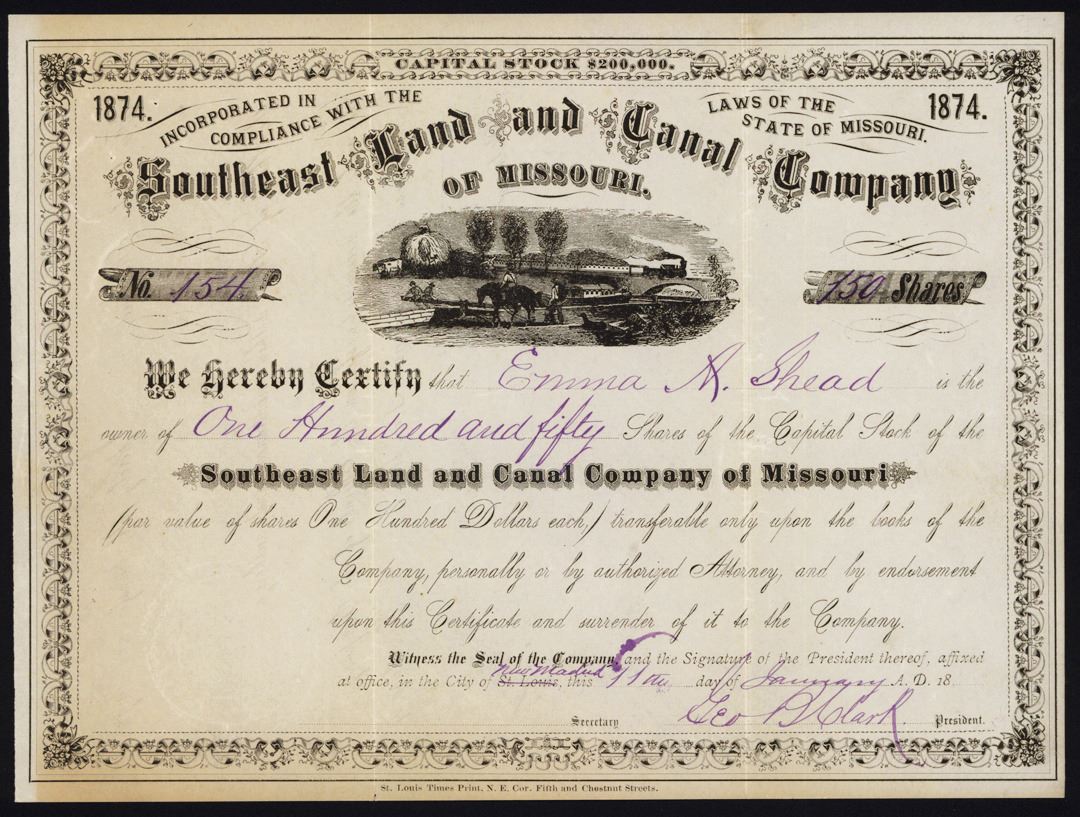 CAPITAL STOCK $200,000.
1874. INCORPORATED IN COMPLIANCE WITH THE LAWS OF THE STATE OF MISSOURI. 1874.
Southeast Land and Canal Company
OF MISSOURI.
No. 154 150 Shares
We Hereby Certify that Emma A. Shead is the
owner of One Hundred and fifty Shares of the Capital Stock of the
Southeast Land and Canal Company of Missouri
(par value of shares One Hundred Dollars each,) transferable only upon the books of the
Company, personally or by authorized Attorney, and by endorsement
upon this Certificate and surrender of it to the Company.
Witness the Seal of the Company, and the Signature of the President thereof, affixed
New Madrid
at office, in the City of St. Louis, this day of January A. D. 18
Secretary Geo B Clark President.
St. Louis Times Print, N. E. Cor. Fifth and Chestnut Streets.